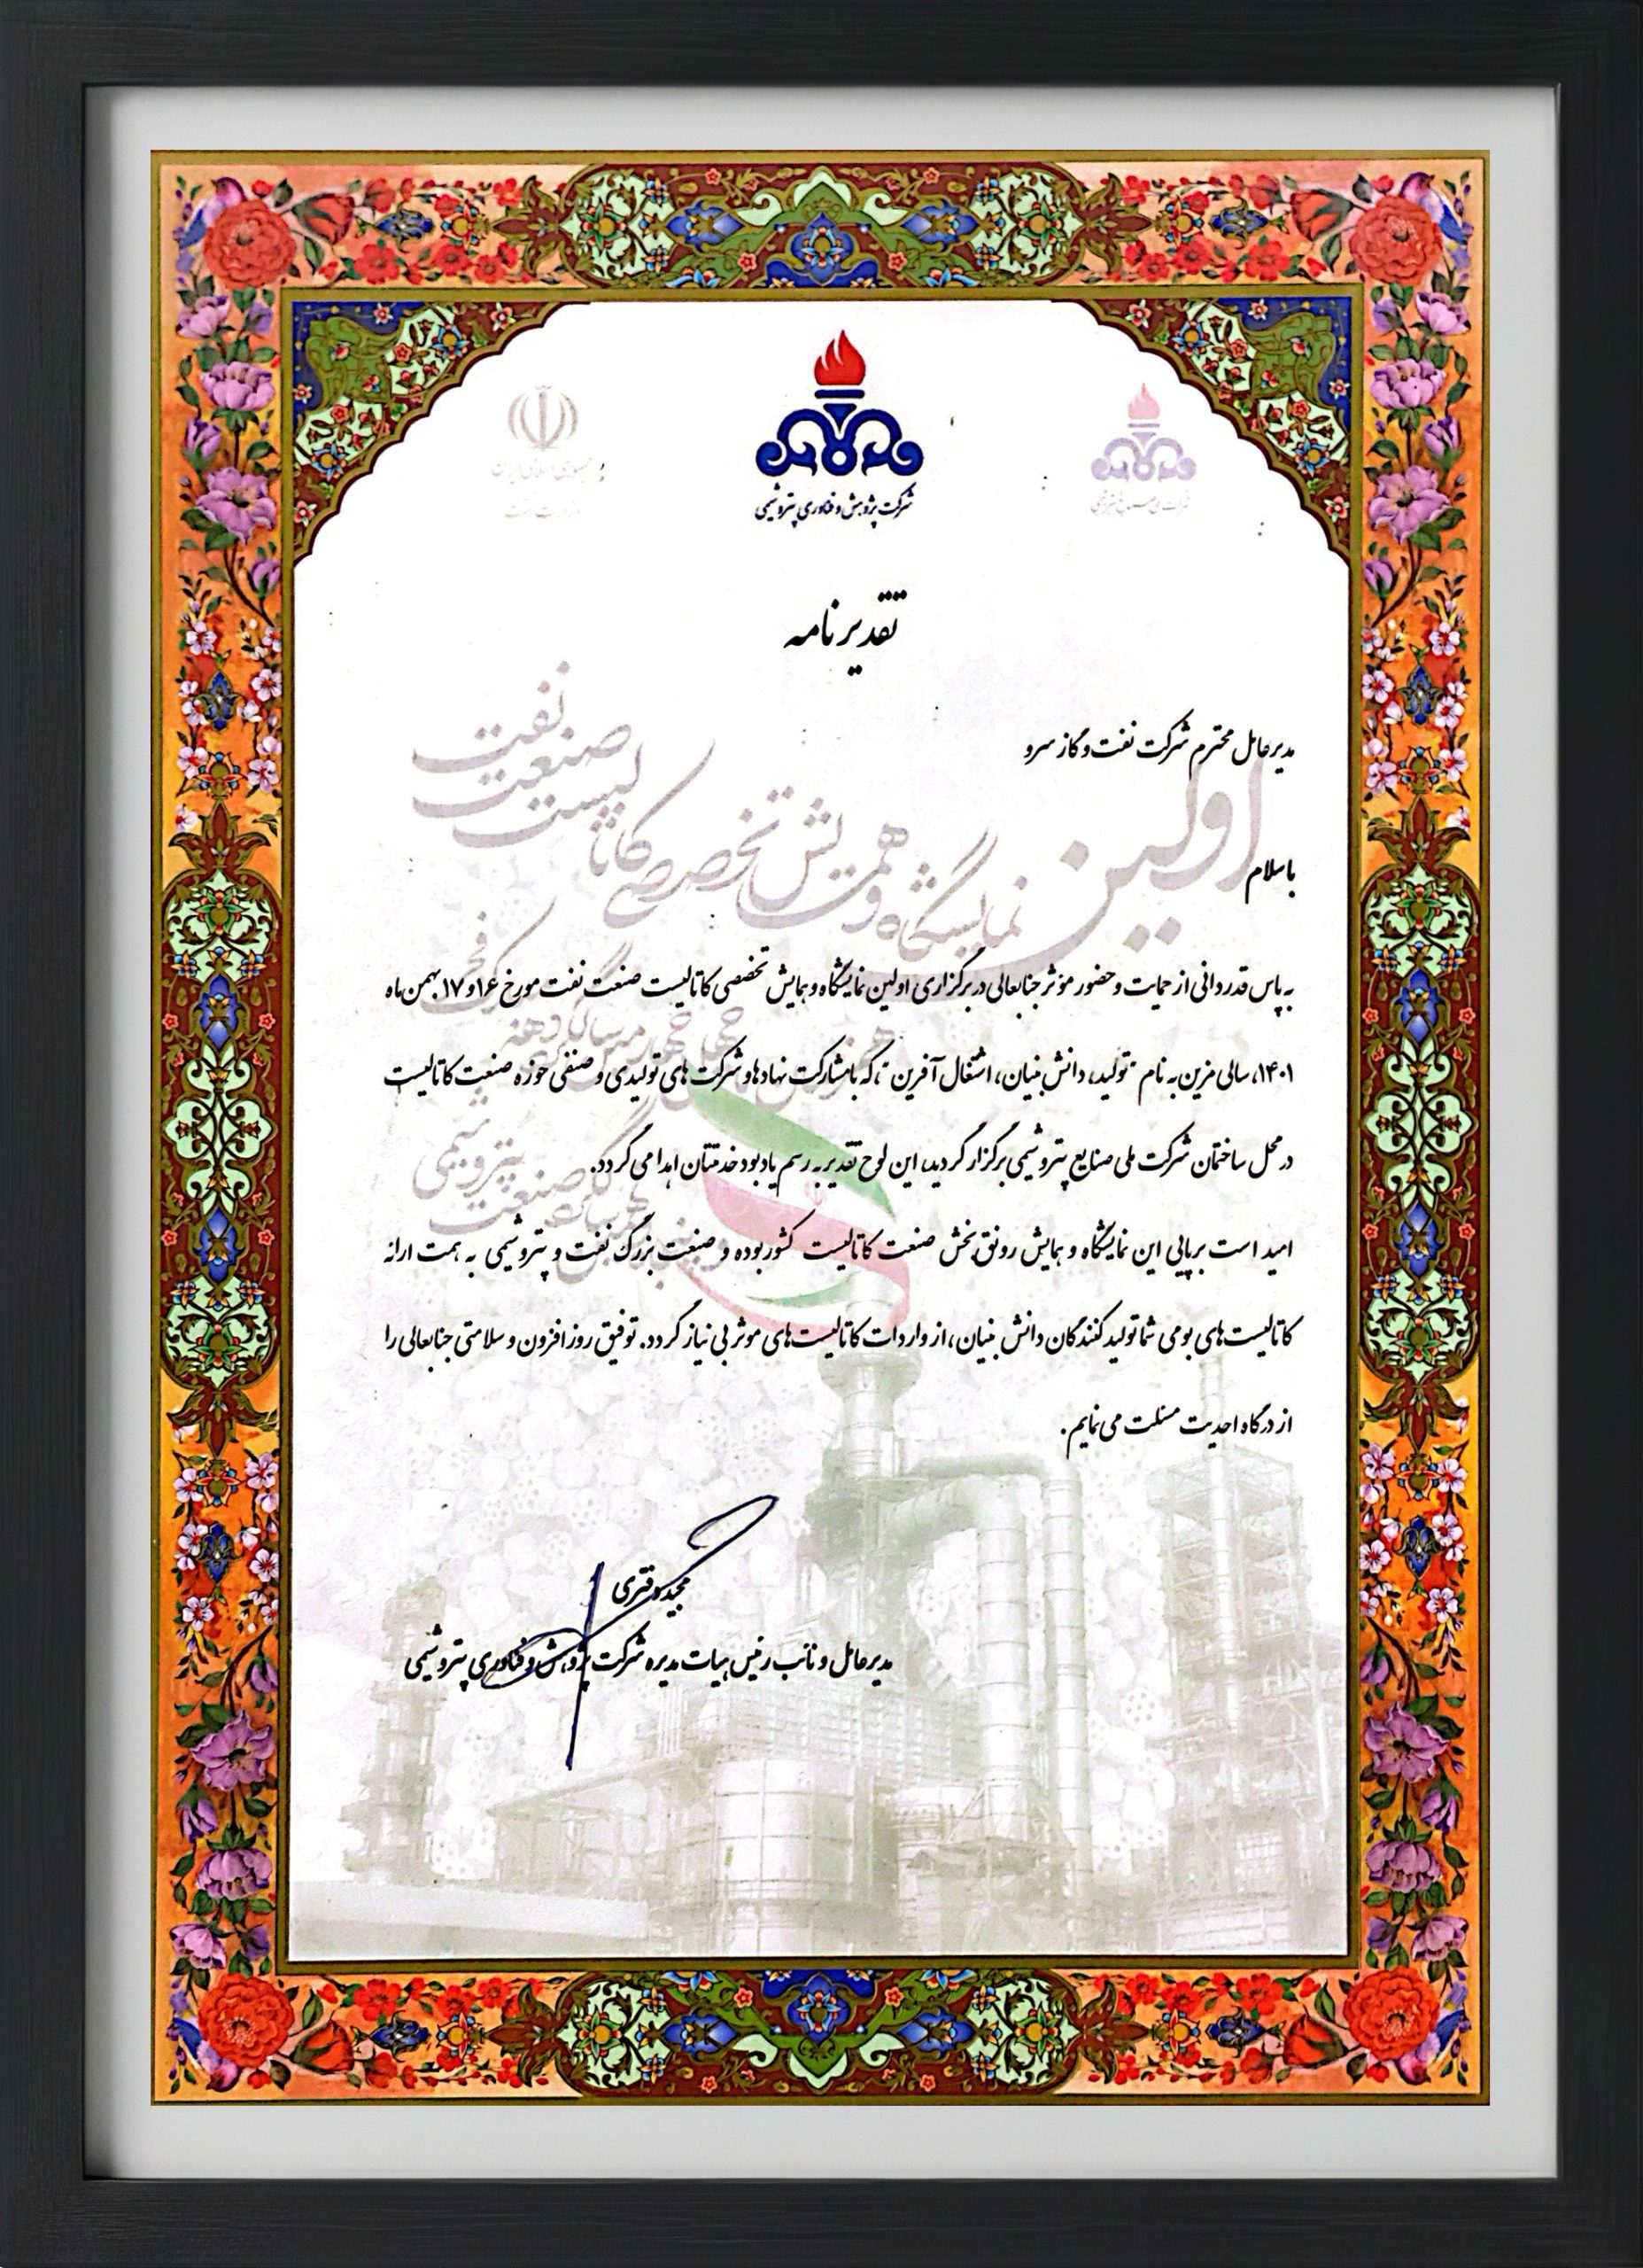 جمهوری اسلامی ایران
وزارت نفت
شرکت پژوهش و فناوری پتروشیمی
تقدیرنامه
اولین نمایشگاه و همایش تخصصی کاتالیست صنعت نفت
مدیرعامل محترم شرکت نفت و گاز سرو
با سلام
به پاس قدردانی از حمایت و حضور مؤثر جنابعالی در برگزاری اولین نمایشگاه و همایش تخصصی کاتالیست صنعت نفت مورخ ۱۶ و ۱۷ بهمن ماه
۱۴۰۱، سالی مزین به نام "تولید، دانش بنیان، اشتغال آفرین"، که با مشارکت نهادها و شرکت های تولیدی و صنفی حوزه صنعت کاتالیست
در محل ساختمان شرکت ملی صنایع پتروشیمی برگزار گردید، این لوح تقدیر به رسم یادبود خدمتتان اهدا می گردد.
امید است برپایی این نمایشگاه و همایش رونق بخش صنعت کاتالیست کشور بوده و صنعت بزرگ نفت و پتروشیمی به همت ارائه
کاتالیست های بومی شما تولیدکنندگان دانش بنیان، از واردات کاتالیست های موثر بی نیاز گردد. توفیق روزافزون و سلامتی جنابعالی را
از درگاه احدیت مسئلت می نمایم.
مجید دفتری
مدیرعامل و نائب رئیس هیات مدیره شرکت پژوهش و فناوری پتروشیمی